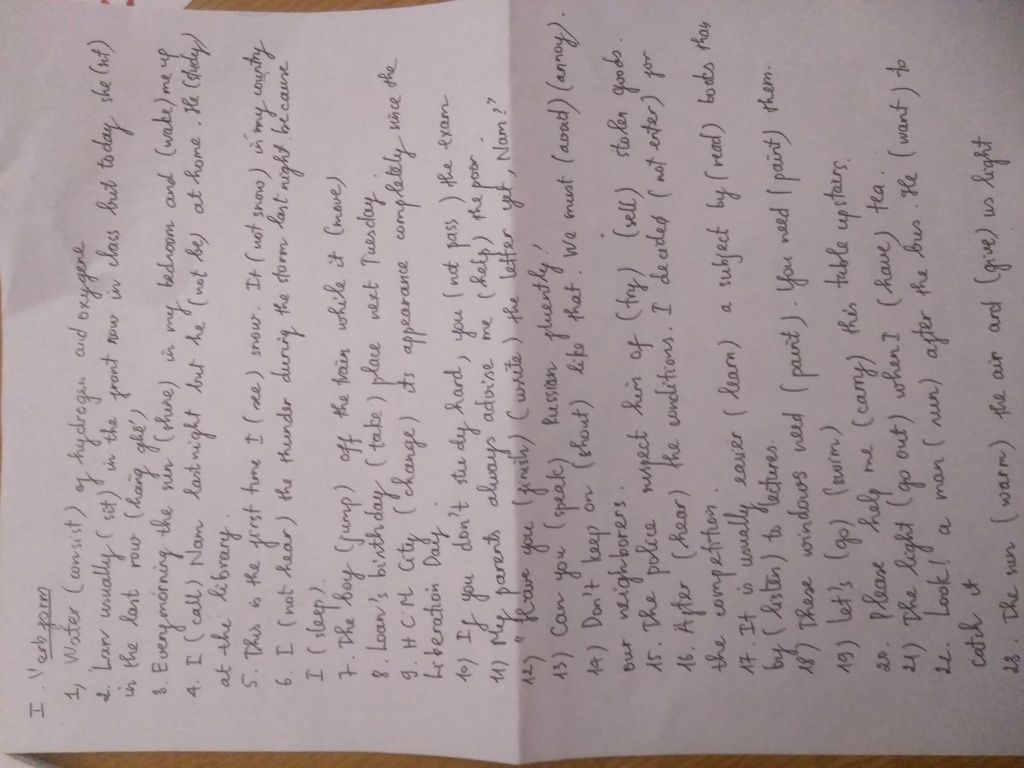 I. Verb form
1, Water (consist) of hydrogen and oxygene
2. Lan usually (sit) in the front row in class but today she (sit)
in the last row (hàng ghế)
3. Every morning the sun (shine) in my bedroom and (wake) me up
4. I (call) Nam last night but he (not be) at home. He (study)
at the library.
5. This is the first time I (see) snow. It (not snow) in my country
6. I (not hear) the thunder during the storm last night because
I (sleep).
7. The boy (jump) off the train while it (move)
8. Loan's birthday (take) place next Tuesday.
9. H C M City (change) its appearance completely since the
Liberation Day
10) If you don't study hard, you (not pass) the exam
11) My parents always advise me (help) the poor.
12) "Have you (finish) (write) the letter yet, Nam?"
13) Can you (speak) Russian fluently?
14) Don't keep on (shout) like that. We must (avoid) (annoy).
our neighborers.
15. The police suspect him of (try) (sell) stolen goods.
16. After (hear) the conditions. I decided (not enter) for
the competition.
17. It is usually easier (learn) a subject by (read) books than
by (listen) to lectures.
18) These windows need (paint). You need (paint) them.
19) Let's (go) (swim)
20. Please help me (carry) this table upstairs.
21) The light (go out) when I (have) tea.
22. Look! a man (run) after the bus. He (want) to
catch it
23. The sun (warm) the air and (give) us light